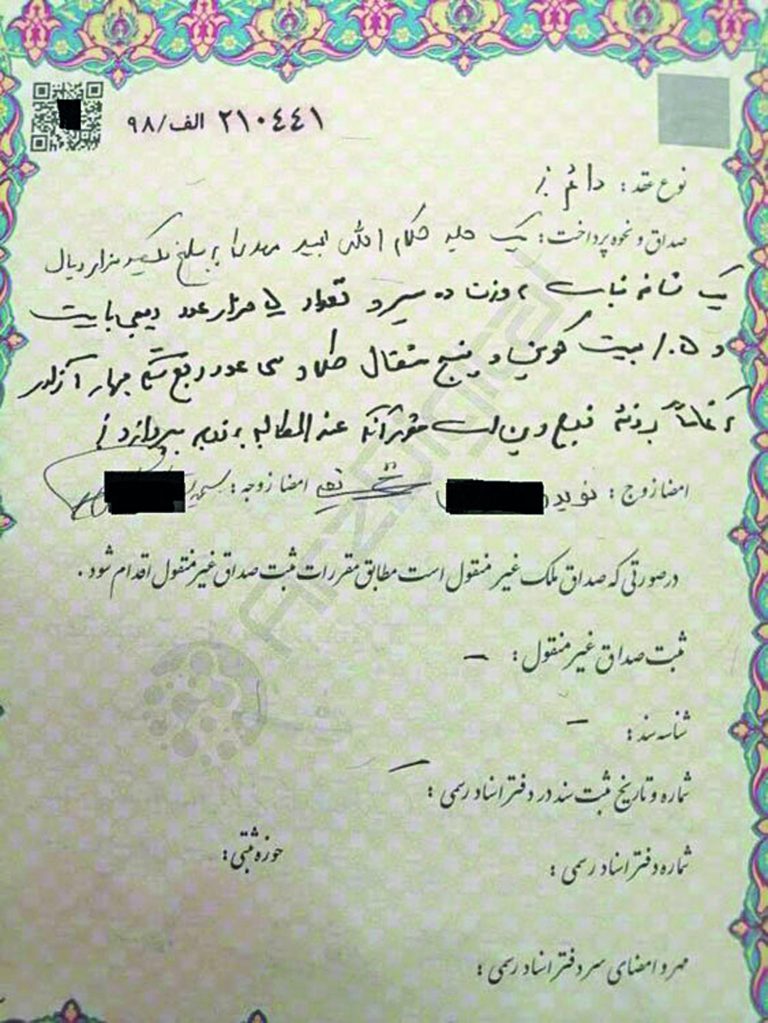 ۲۱۰۴۴۱ الف/۹۸
نوع عقد: دائم
صداق و نحوه پرداخت: یک جلد کلام الله مجید مهدیه مبلغ یکصد هزار ریال
یک شاخه نبات به وزن ده سیر و تعداد ۵ هزار عدد دیجی بایت
و ۰.۵ بیت کوین و پنج مثقال طلا و سی عدد ربع سکه بهار آزادی
که تماماً بر ذمه زوج دین است عندالمطالبه به زوجه بپردازد
امضا زوج: نوید امضا زوجه:
درصورتی که صداق ملک غیر منقول است مطابق مقررات ثبت صداق غیر منقول اقدام شود.
ثبت صداق غیر منقول: –
شناسه سند: –
شماره و تاریخ ثبت سند در دفتر اسناد رسمی: –
شماره دفتر اسناد رسمی: حوزه ثبتی:
مهر و امضای سر دفتر اسناد رسمی:
ARZDIGITAL